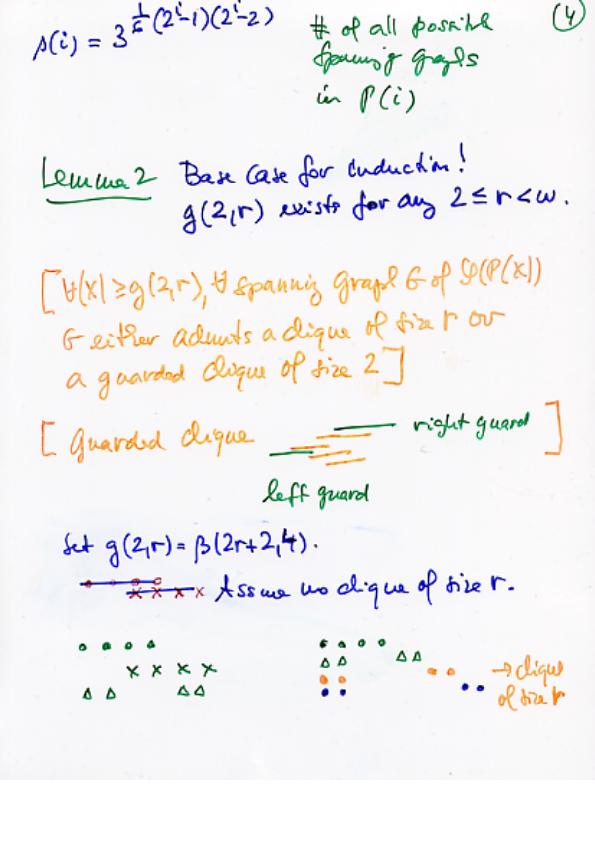 ρ(i) = 3^{1/6 (2^i-1)(2^i-2)}
# of all possible
spanning graphs
in P(i)
(4)
Lemma 2 Base Case for induction!
g(2,r) exists for any 2 ≤ r < ω.
[∀|X| ≥ g(2,r), ∀ spanning graph G of (P(X))
G either admits a clique of size r or
a guarded clique of size 2]
[guarded clique right guard]
left guard
Set g(2,r) = β(2r+2,4).
Assume no clique of size r.
→ clique
of size r